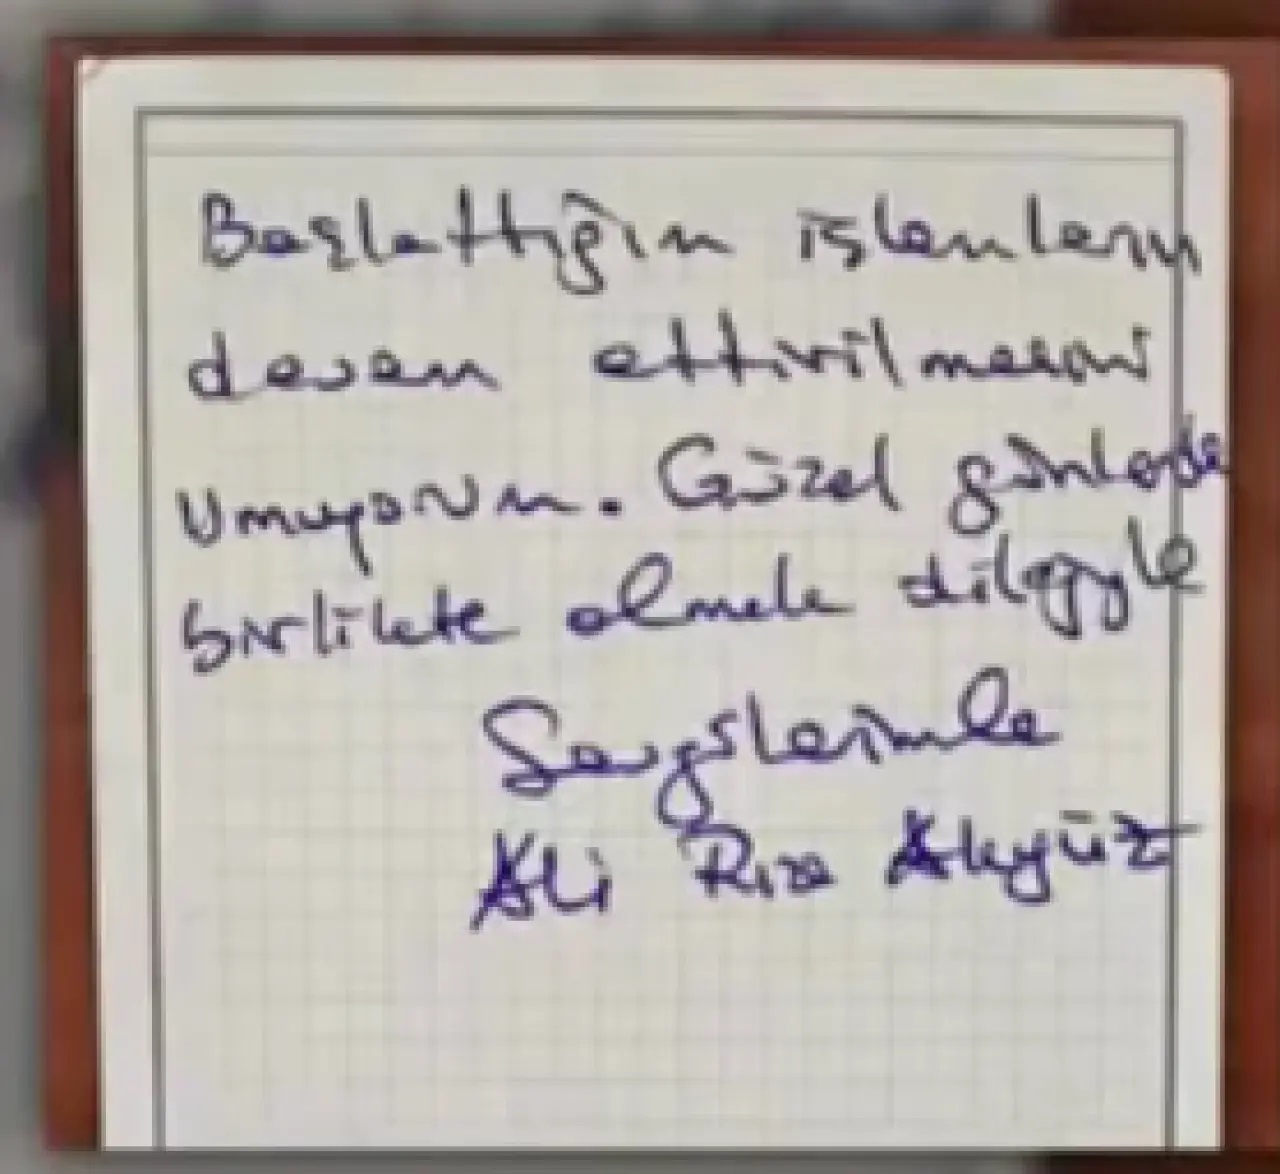 Başlattığın işlemlerin
devam ettirilmesini
Umuyorum. Güzel günlerde
birlikte olmak dileğiyle
Sevgilerimle
Ali Rıza Akyüz